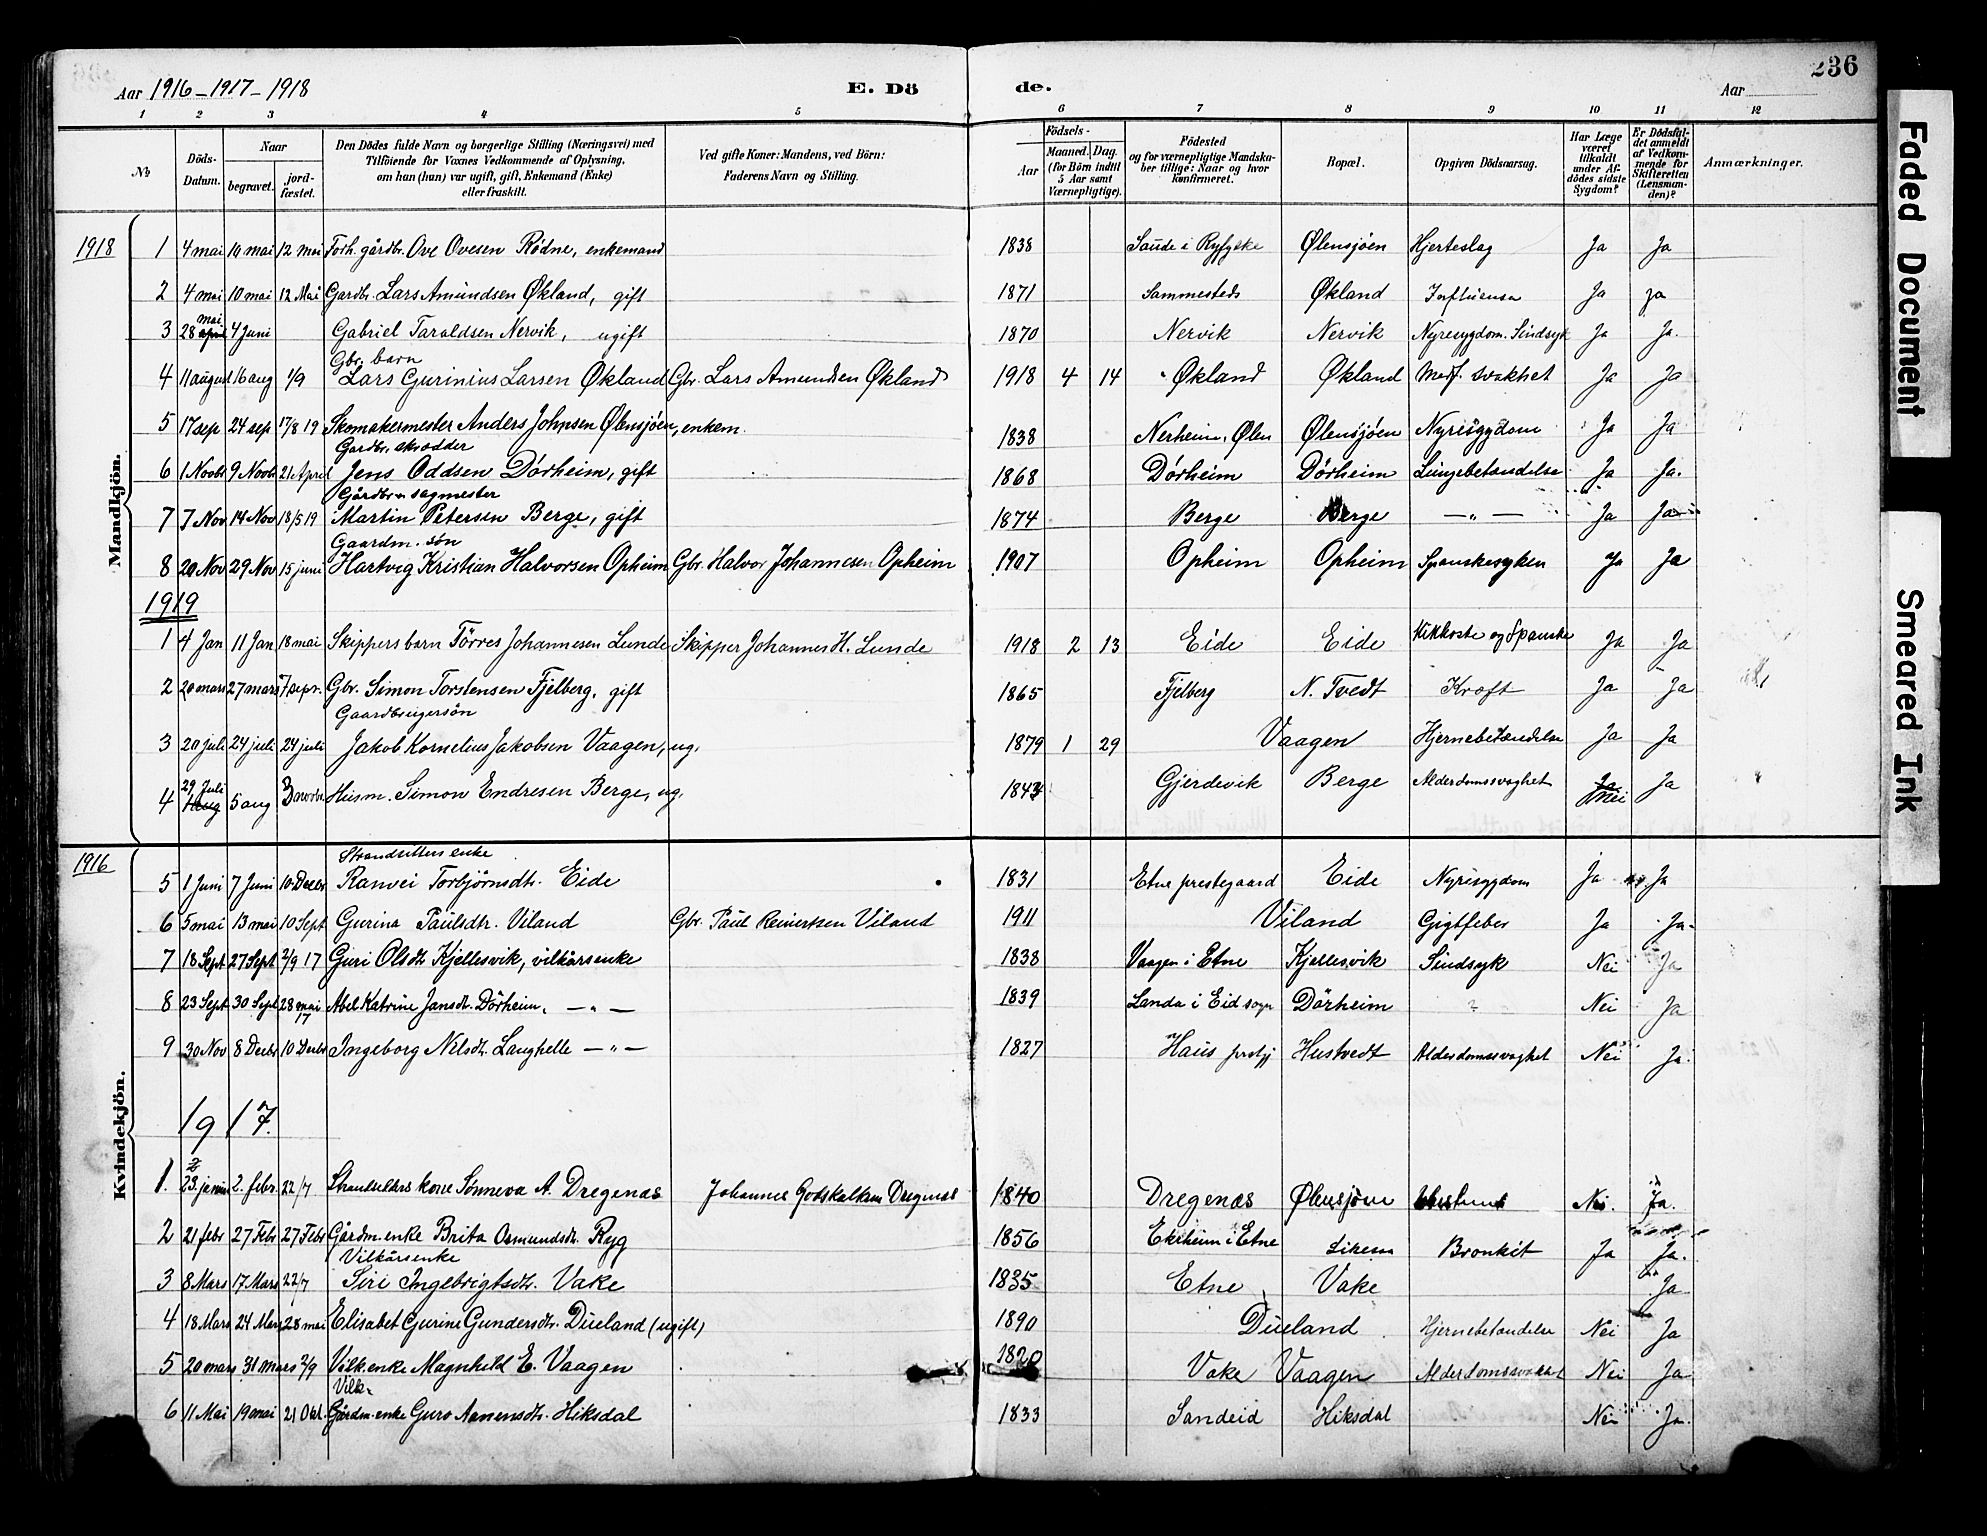 236
Aar 1916-1917-1918 E. Dö de. Aar
1 2 3 4 5 6 7 8 9 10 11 12
No Döds-Datum. Naar begravet. jordfæstet. Den Dödes fulde Navn og borgerlige Stilling (Næringsvei) med Tilföiende for Voxnes Vedkommende af Oplysning, om han (hun) var ugift, gift, Enkemand (Enke) eller fraskilt. Ved gifte Koner: Mandens, ved Börn: Faderens Navn og Stilling. Födsels- Aar Maaned. Dag. (for Börn indtil 5 Aar samt Værnepligtige). Födested og for værnepligtige Mandskaber tillige: Naar og hvor konfirmeret. Bopæl. Opgiven Dödsaarsag. Har Læge været tilkaldt under Afdödes sidste Sygdom? Er Dödsfaldet anmeldt af Vedkommende for Skifteretten (Lensmanden)? Anmærkninger.
Mandkjön.
1918 1 4 mai 10 mai 12 mai Forh. gårdbr. Ove Ovesen Rødne, enkemand 1838 Saude i Ryfylke Ølensjöen Hjerteslag Ja Ja
2 4 mai 10 mai 12 Mai Gardbr. Lars Amundsen Økland, gift 1871 Sammesteds Økland Influensa Ja ja
3 28 april mai 4 Juni Gabriel Taraldsen Nervik, ugift 1870 Nervik Nervik Nyresygdom. Sindsyk Ja Ja.
Gbr. barn
4 11 august 16 aug 1/9 Lars Gurinius Larsen Økland Gbr. Lars Amundsen Økland 1918 4 14 Økland Økland Medf. svakhet Ja Ja
5 17 sep 24 sep 17/8 19 Skomakermester Anders Johnsen Ølensjøen, enkem. 1838 Nerheim, Ølen Ølensjöen Nyresygdom Ja Ja
Gardbr. skrædder
6 1 Novbr 9 Novbr 21 April Jens Oddsen Dörheim, gift 1868 Dörheim Dörheim Lungebetændelse Ja Ja.
Gårdbr. sagmester
7 7 Nov 14 Nov 18/5 19 Martin Petersen Berge, gift 1874 Berge Berge — " — Ja Ja
Gaardm. søn
8 20 Nov 29 Nov 15 juni Hartvig Kristian Halvorsen Opheim Gbr. Halvor Johannesen Opheim 1907 Opheim Opheim Spanskesyken Ja Ja
1919
1 4 Jan 11 Jan 18 mai Skippers barn Törres Johannesen Lunde Skipper Johannes H. Lunde 1918 2 13 Eide Eide Kikhoste og Spanske Ja Ja
2 20 mars 27 mars 7 sepr. Gbr. Simon Torstensen Fjelberg, gift 1865 Fjelberg N. Tvedt Kræft Ja Ja
Gaardbrugersøn
3 20 juli 24 juli 24 juli Jakob Kornelius Jakobsen Vaagen, ug. 1879 1 29 Vaagen Hjernebetændelse Ja Ja
29 Juli
4 1 aug 5 aug 3 novbr Husm. Simon Endresen Berge, ug. 1843 Gjerdevik Berge Alderdomssvaghet Ja Nei Ja
Kvindekjön.
1916 Strandsitters enke
5 1 Juni 7 Juni 10 Decbr Ranvei Torbjørnsdtr. Eide 1831 Etne prestegaard Eide Nyrisygdom Ja Ja
6 5 mai 13 mai 10 Sept Gurina Paulsdtr. Viland Gbr. Paul Reinertsen Viland 1911 Viland Gigtfeber Ja Ja.
7 18 Sept 27 Sept 2/9 17 Guri Olsdtr. Kjellesvik, vilkårsenke 1838 Vaagen i Etne Kjellesvik Sindsyk Nei Ja
8 23 Sept 30 Sept 28 mai 17 Abel Katrine Jansdtr. Dörheim, — " — 1839 Landa i Eid sogn Dörheim ? Nei Ja
9 30 Nov 8 Decbr 10 Decbr Ingeborg Nilsdtr. Langhelle — " — 1827 Haus prstgj Hustvedt Alderdomssvaghet Nei Ja
1917.
1. 23. januar 2. febr. 22/7 Strandsitters kone Sönneva A. Dregenæs Johannes Godskalksen Dregenæs 1840 Dregenæs Ølensjöen Nei. Ja.
2 21 febr 27 Febr 27 Febr Gårdm. enke Brita Osmundsdtr. Ryg 1856 Ekrheim i Etne Bronkit Ja Ja.
Vilkårsenke
3 8 Mars 17 Mars 22/7 Siri Ingebrigtsdtr. Vake 1835 Etne Vake Ja
4 18 Mars 24 Mars 28 mai Elisabet Gurine Gundersdtr. Dueland (ugift) 1890 Dueland Hjernebetændelse Nei Ja
5 20 mars 31 mars 2/9 Vilk. enke Magnhild E. Vaagen 1820 Vake Vaagen Alderdomssvakhet Nei Ja
Vilk.
6 11 Mai 19 mai 21 Okt. Gårdm. enke Guro Aanensdtr. Hiksdal 1833 Sandeid Hiksdal Nei Ja.
Faded Document
Smeared Ink